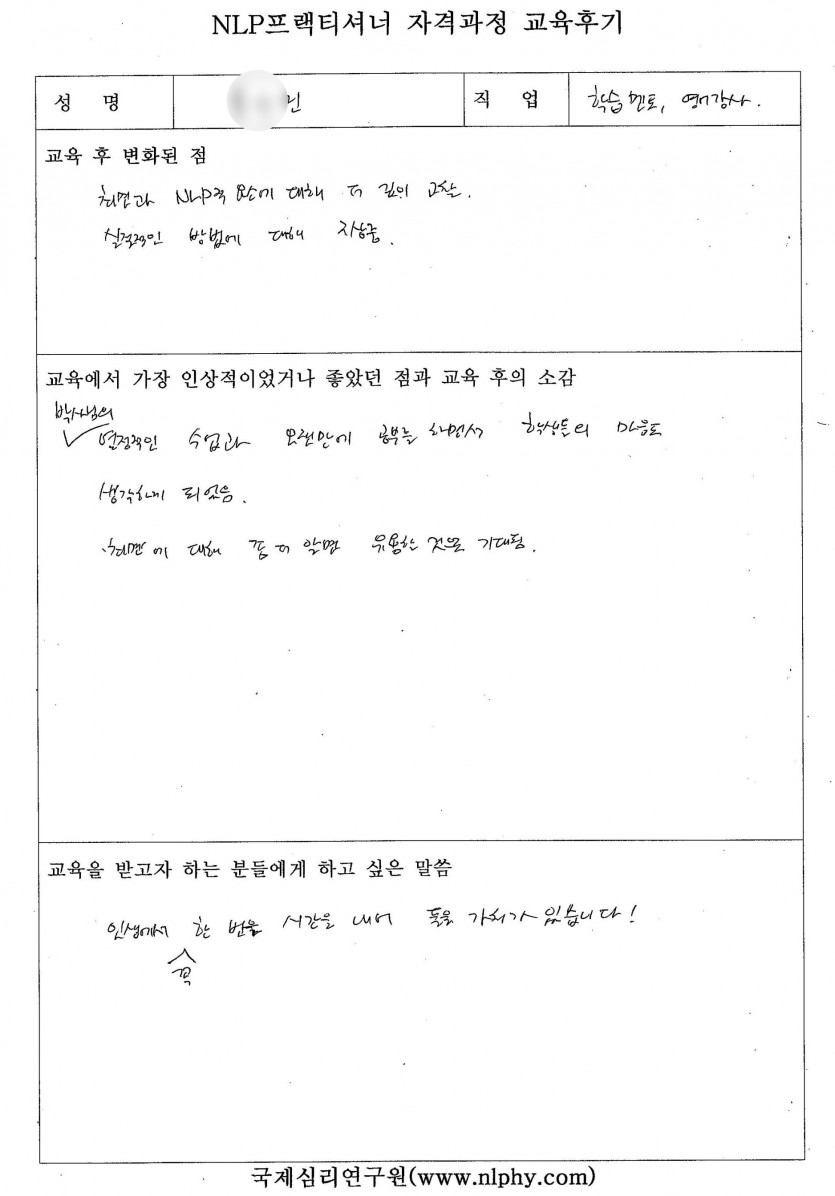 NLP프랙티셔너 자격과정 교육후기
성 명 닌 직 업 학습멘토, 영어강사.
교육 후 변화된 점
최면과 NLP적 요소에 대해 더 깊이 고찰.
실질적인 방법에 대해
교육에서 가장 인상적이었거나 좋았던 점과 교육 후의 소감
박사님의
열정적인 수업과 오랜만에 공부를 하면서 학생들의 마음도
생각하게 되었음.
최면에 대해 좀 더 알면 유용한 것으로 기대됨.
교육을 받고자 하는 분들에게 하고 싶은 말씀
인생에서 한 번은 시간을 내어 들을 가치가 있습니다!
꼭
국제심리연구원(www.nlphy.com)